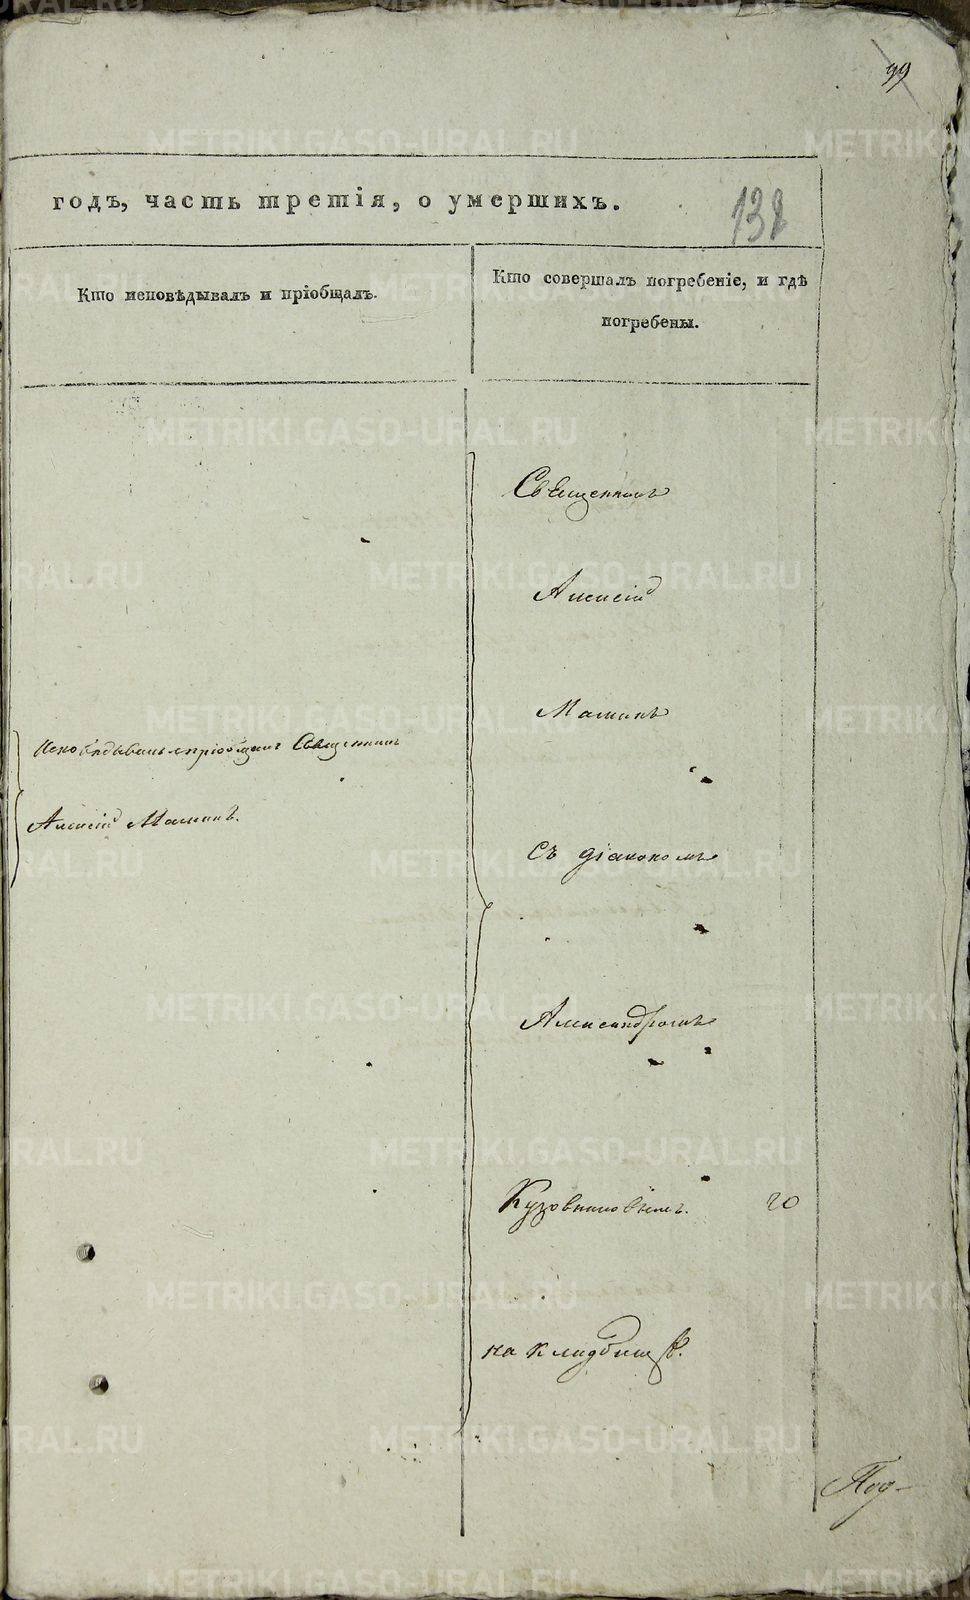 99
годъ, часть третія, о умершихъ.
138
Кто исповѣдывалъ и пріобщалъ.
Кто совершалъ погребеніе, и гдѣ
погребены.
Священникъ
Алексій
Маминъ
Исповѣдывалъ и пріобщалъ Священникъ
Алексій Маминъ.
Съ діакономъ
Александромъ
Кузовниковымъ. 20
на кладбищѣ.
Под-
METRIKI.GASO-URAL.RU